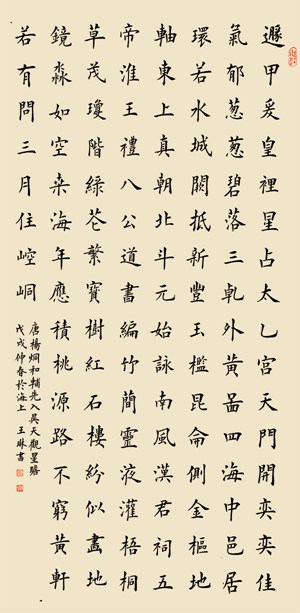 遯甲爰皇裡星占太乙宮天門開奕奕佳
氣郁葱葱碧落三乹外黄啚四海中邑居
環若水城闕抵新豐玉檻昆侖側金樞地
軸東上真朝北斗元始詠南風漢君祠五
帝淮王禮八公道書編竹簡靈液灌梧桐
草茂瓊階綠芲繁寶樹紅石樓紛似畫地
鏡淼如空桒海年應積桃源路不窮黄軒
若有問三月住崆峒
唐楊炯和輔先入昊天觀星瞻
戊戌仲春於海上王琳書